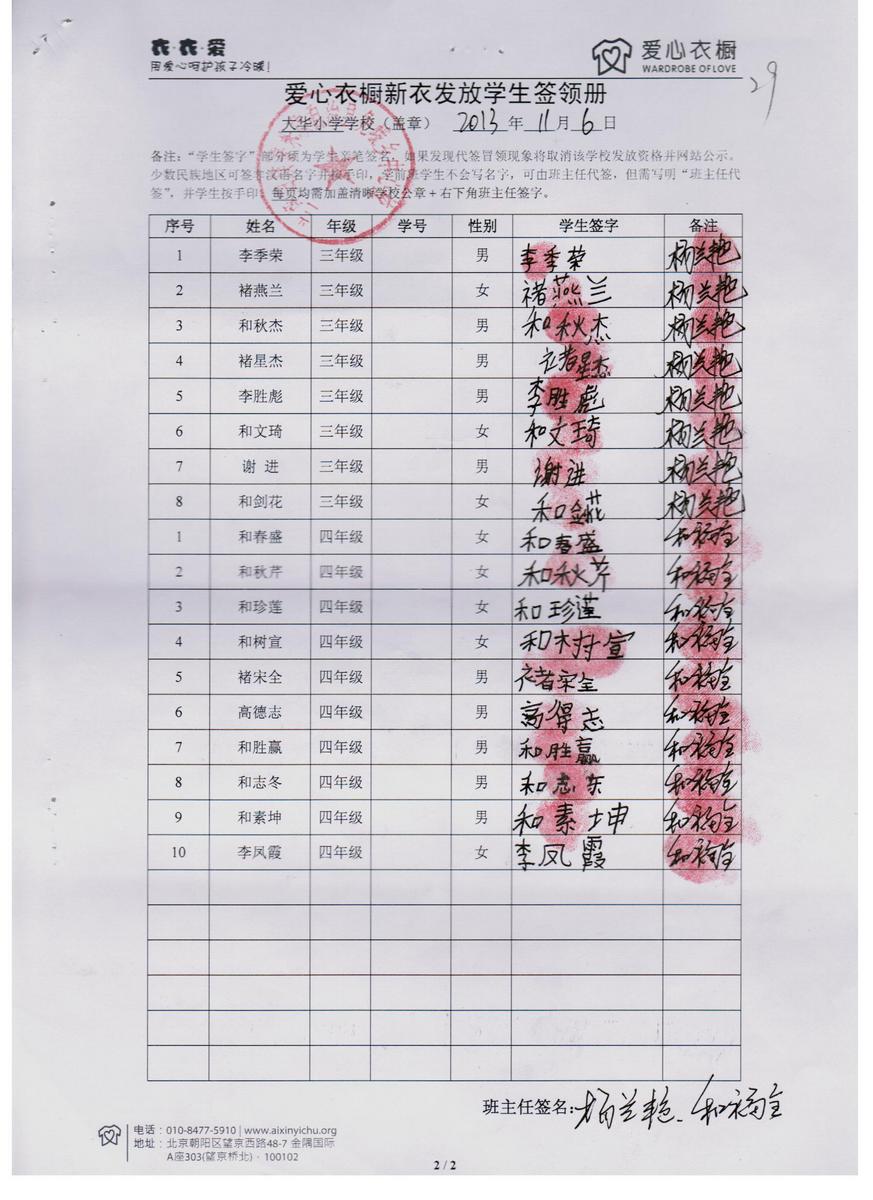 衣·衣·爱
用爱心呵护孩子冷暖!
爱心衣橱
WARDROBE OF LOVE
29
爱心衣橱新衣发放学生签领册
大华小学学校（盖章） 2013 年 11 月 6 日
备注：“学生签字”部分须为学生亲笔签名，如果发现代签冒领现象将取消该学校发放资格并网站公示。
少数民族地区可签本汉语名字并按手印，学前班学生不会写名字，可由班主任代签，但需写明“班主任代
签”，并学生按手印；每页均需加盖清晰学校公章＋右下角班主任签字。
序号 姓名 年级 学号 性别 学生签字 备注
1 李季荣 三年级 男 李季荣 杨兰艳
2 褚燕兰 三年级 女 褚燕兰 杨兰艳
3 和秋杰 三年级 男 和秋杰 杨兰艳
4 褚星杰 三年级 男 褚星杰 杨兰艳
5 李胜彪 三年级 男 李胜彪 杨兰艳
6 和文琦 三年级 女 和文琦 杨兰艳
7 谢 进 三年级 男 谢进 杨兰艳
8 和剑花 三年级 女 和剑花 杨兰艳
1 和春盛 四年级 女 和春盛 和福全
2 和秋芹 四年级 女 和秋芹 和福全
3 和珍莲 四年级 女 和珍莲 和福全
4 和树宣 四年级 女 和树宣 和福全
5 褚宋全 四年级 男 褚宋全 和福全
6 高德志 四年级 男 高得志 和福全
7 和胜赢 四年级 男 和胜赢 和福全
8 和志冬 四年级 男 和志东 和福全
9 和素坤 四年级 男 和素坤 和福全
10 李凤霞 四年级 女 李凤霞 和福全
班主任签名：杨兰艳、和福全
电话：010-8477-5910 | www.aixinyichu.org
地址：北京朝阳区望京西路48-7 金隅国际
A座303(望京桥北)·100102
2 / 2